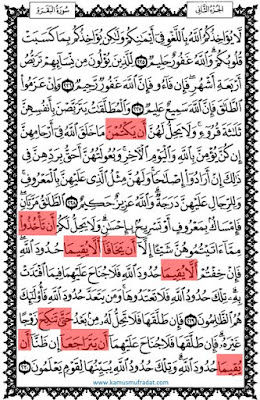 الجزء الثاني سورة البقرة
لَا يُؤَاخِذُكُمُ اللَّهُ بِاللَّغْوِ فِي أَيْمَانِكُمْ وَلَكِن يُؤَاخِذُكُم بِمَا كَسَبَتْ
قُلُوبُكُمْ وَاللَّهُ غَفُورٌ حَلِيمٌ ٢٢٥ لِّلَّذِينَ يُؤْلُونَ مِن نِّسَائِهِمْ تَرَبُّصُ
أَرْبَعَةِ أَشْهُرٍ فَإِن فَاءُو فَإِنَّ اللَّهَ غَفُورٌ رَّحِيمٌ ٢٢٦ وَإِنْ عَزَمُوا
الطَّلَاقَ فَإِنَّ اللَّهَ سَمِيعٌ عَلِيمٌ ٢٢٧ وَالْمُطَلَّقَاتُ يَتَرَبَّصْنَ بِأَنفُسِهِنَّ
ثَلَاثَةَ قُرُوءٍ وَلَا يَحِلُّ لَهُنَّ أَن يَكْتُمْنَ مَا خَلَقَ اللَّهُ فِي أَرْحَامِهِنَّ
إِن كُنَّ يُؤْمِنَّ بِاللَّهِ وَالْيَوْمِ الْآخِرِ وَبُعُولَتُهُنَّ أَحَقُّ بِرَدِّهِنَّ فِي
ذَلِكَ إِنْ أَرَادُوا إِصْلَاحًا وَلَهُنَّ مِثْلُ الَّذِي عَلَيْهِنَّ بِالْمَعْرُوفِ
وَلِلرِّجَالِ عَلَيْهِنَّ دَرَجَةٌ وَاللَّهُ عَزِيزٌ حَكِيمٌ ٢٢٨ الطَّلَاقُ مَرَّتَانِ
فَإِمْسَاكٌ بِمَعْرُوفٍ أَوْ تَسْرِيحٌ بِإِحْسَانٍ وَلَا يَحِلُّ لَكُمْ أَن تَأْخُذُوا
مِمَّا آتَيْتُمُوهُنَّ شَيْئًا إِلَّا أَن يَخَافَا أَلَّا يُقِيمَا حُدُودَ اللَّهِ
فَإِنْ خِفْتُمْ أَلَّا يُقِيمَا حُدُودَ اللَّهِ فَلَا جُنَاحَ عَلَيْهِمَا فِيمَا افْتَدَتْ
بِهِ تِلْكَ حُدُودُ اللَّهِ فَلَا تَعْتَدُوهَا وَمَن يَتَعَدَّ حُدُودَ اللَّهِ فَأُولَئِكَ
هُمُ الظَّالِمُونَ ٢٢٩ فَإِن طَلَّقَهَا فَلَا تَحِلُّ لَهُ مِن بَعْدُ حَتَّى تَنكِحَ زَوْجًا
غَيْرَهُ فَإِن طَلَّقَهَا فَلَا جُنَاحَ عَلَيْهِمَا أَن يَتَرَاجَعَا إِن ظَنَّا أَن
يُقِيمَا حُدُودَ اللَّهِ وَتِلْكَ حُدُودُ اللَّهِ يُبَيِّنُهَا لِقَوْمٍ يَعْلَمُونَ ٢٣٠
www.kamusmufradat.com